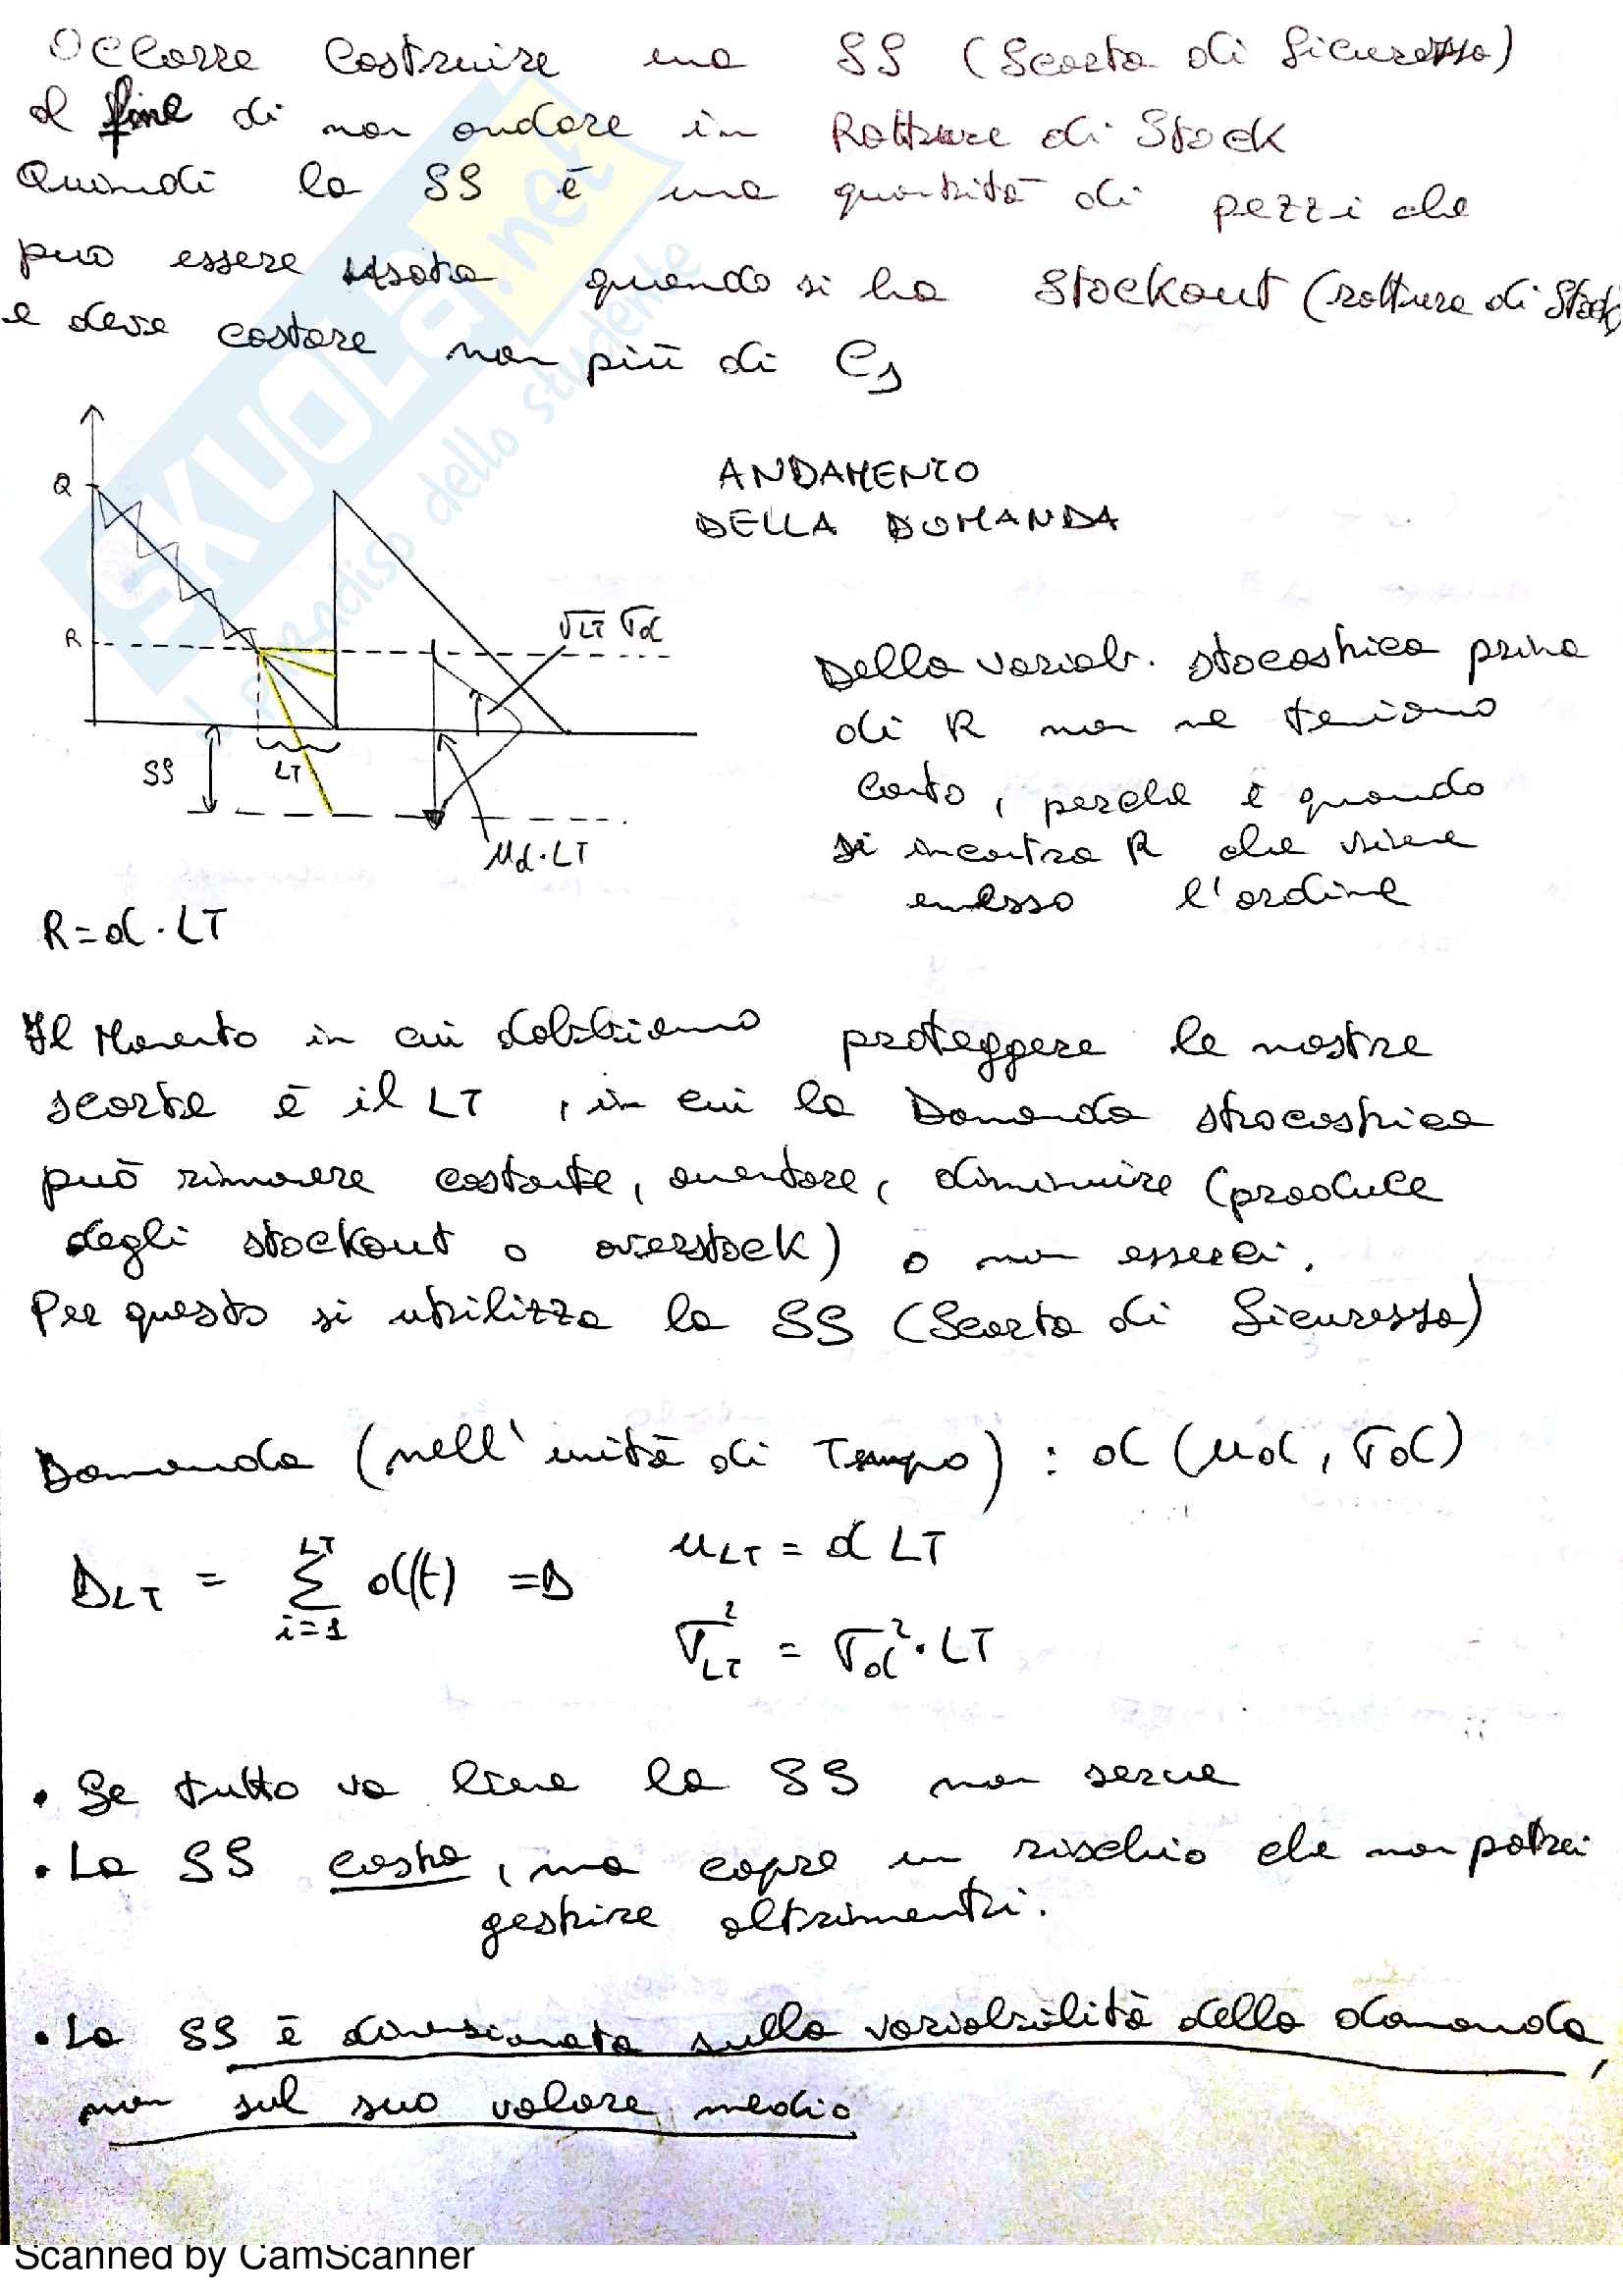 Occorre costruire una SS (Scorta di Sicurezza)
al fine di non andare in Rottura di Stock
Quindi la SS è una quantità di pezzi che
può essere usata quando si ha Stockout (rottura di Stock)
e deve costare non più di Cs
Q
ANDAMENTO
DELLA DOMANDA
R
√LT σd
SS
LT
μd·LT
Della variab. stocastica prima
di R non ne teniamo
conto, perche è quando
si incontra R che viene
emesso l'ordine
R=d·LT
Il Momento in cui dobbiamo proteggere le nostre
scorte è il LT, in cui la Domanda stocastica
può rimanere costante, aumentare, diminuire (produce
degli stockout o overstock) o non esserci.
Per questo si utilizza la SS (Scorta di Sicurezza)
Domanda (nell'unità di Tempo) : d (μd, σd)
D_LT = Σ_{i=1}^{LT} d(t) => μ_LT = d LT
σ²_LT = σd²·LT
• Se tutto va bene la SS non serve
• La SS costa, ma copre un rischio che non potrei
gestire altrimenti.
• La SS è dimensionata sulla variabilità della domanda,
non sul suo valore medio
SKUOLA.net
il paradiso dello studente
Scanned by CamScanner